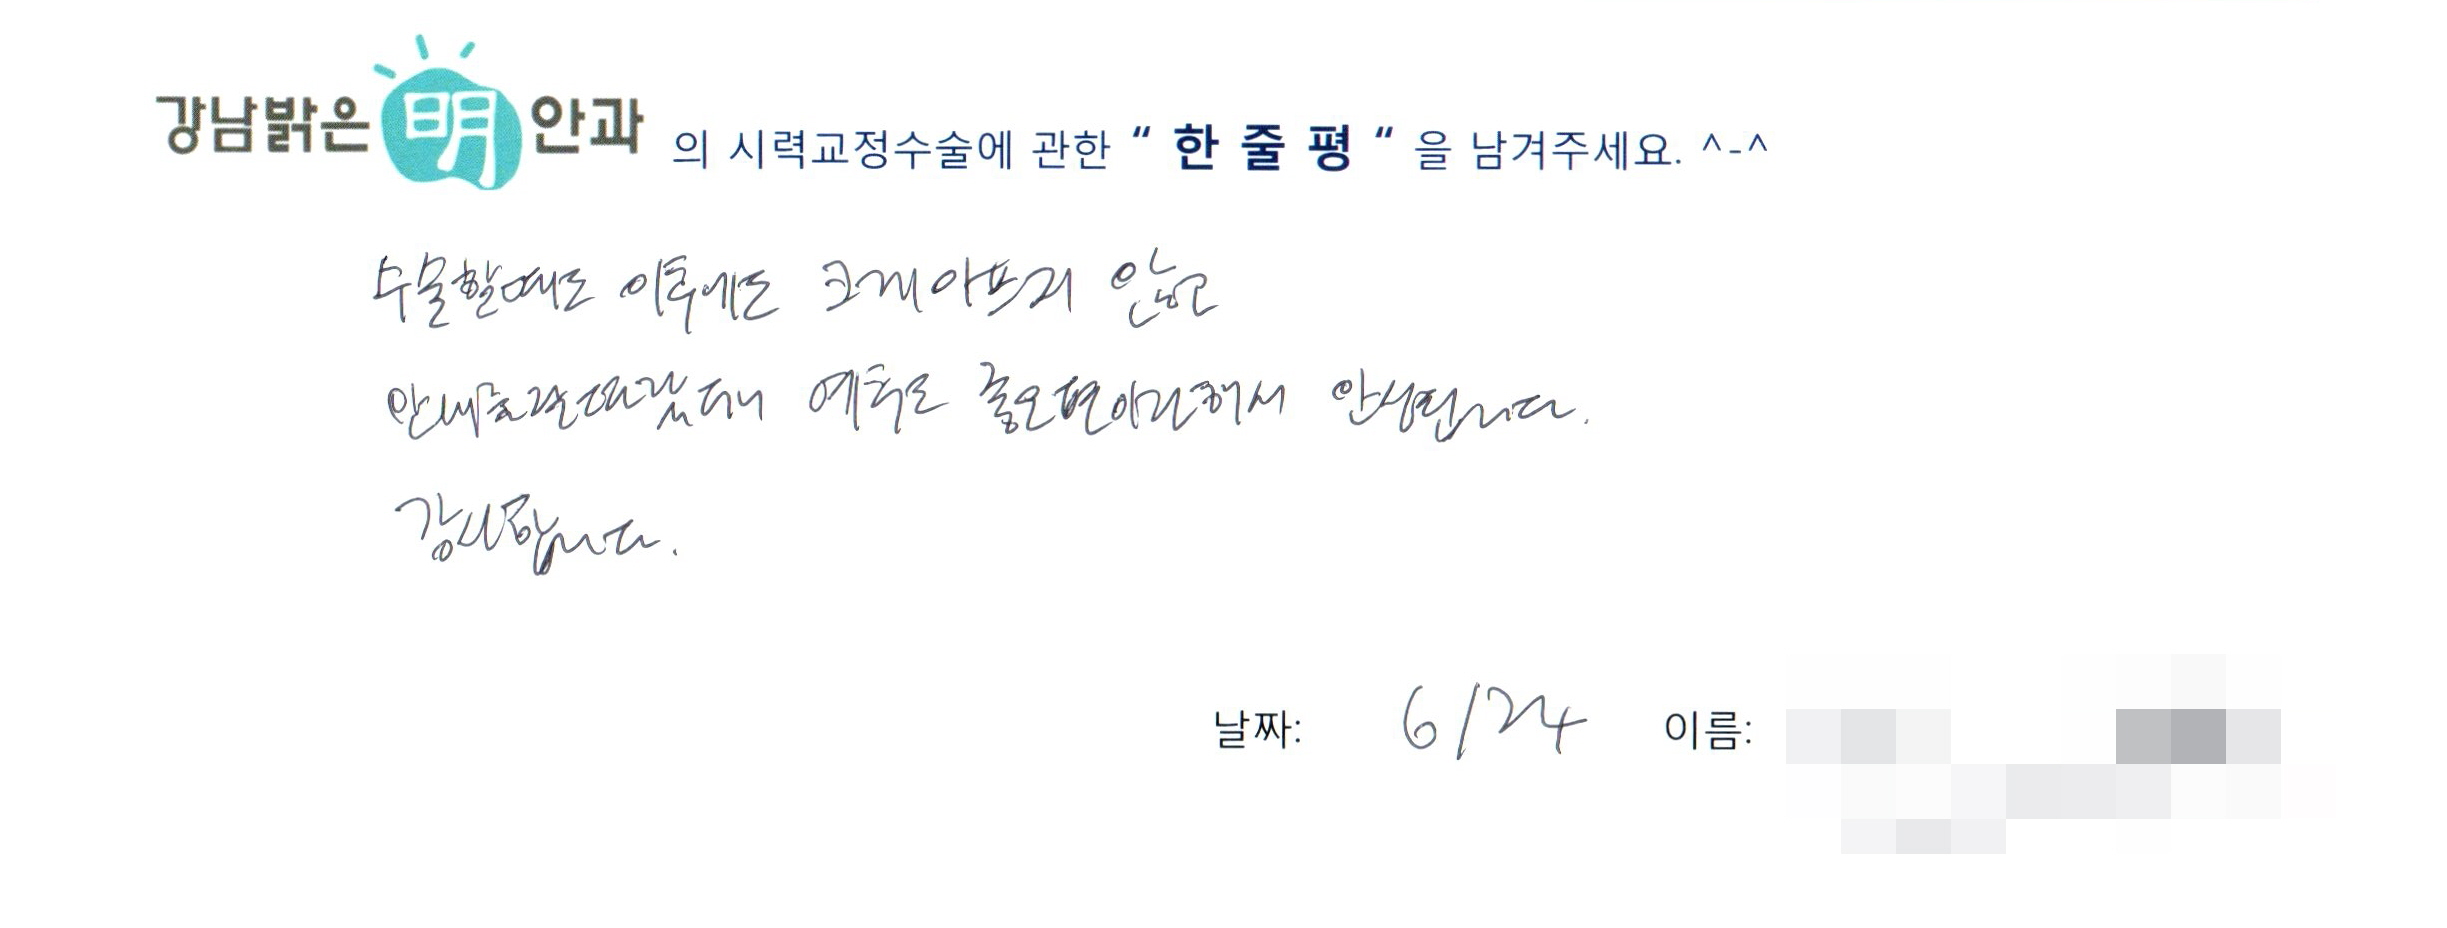 강남밝은 明 안과 의 시력교정수술에 관한 “ 한 줄 평 “ 을 남겨주세요. ^-^
수술할때도 이후에도 크게 아프지 않고
예후도 좋은편이라해서 안심됩니다.
감사합니다.
날짜: 6/24 이름: